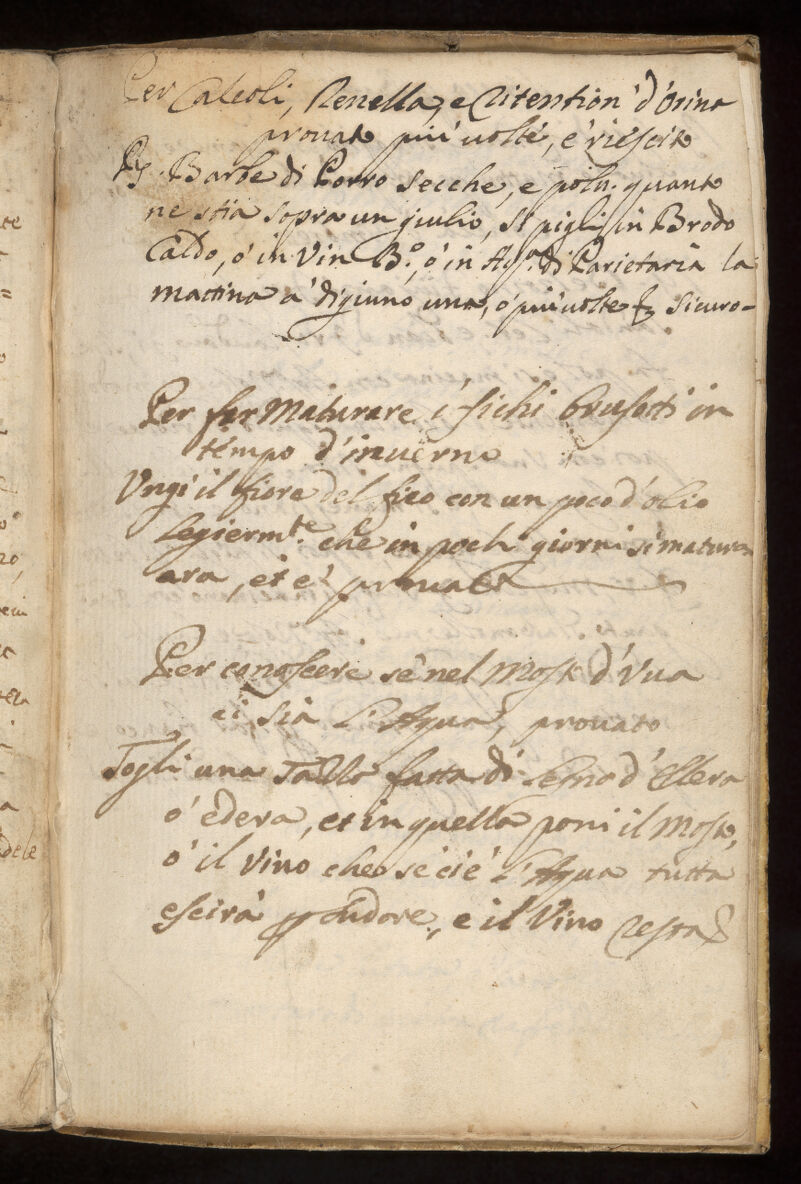 Per Calcoli, Renella, e Ritention' d'Orina
provato piu' volte, e' riescito
Rx. Barbe di Porro secche, e polu. quanto
ne stia sopra un giulio, si pigli in Brodo
Caldo, o' in Vin B.º, o' in Aqa. di Parietaria la
mattina a' digiuno una, o' piu' volte sicuro-
Per far Maturare i' fichi brusotti in
tempo d'inverno
Ungi il fiore del fico con un poco d'olio
Legierm.te che in pochi giorni si matur
ara, et e' provato
Per conoscere se' nel Mosto d'Uua
ci sia L'Aqua, prouato
Togli una fatta di Legno d'Ellera
o' edera, et in quella poni il Mosto,
o' il Vino che se' ci e' L'Aqua tutta
escira' p sudore, e il Vino resta